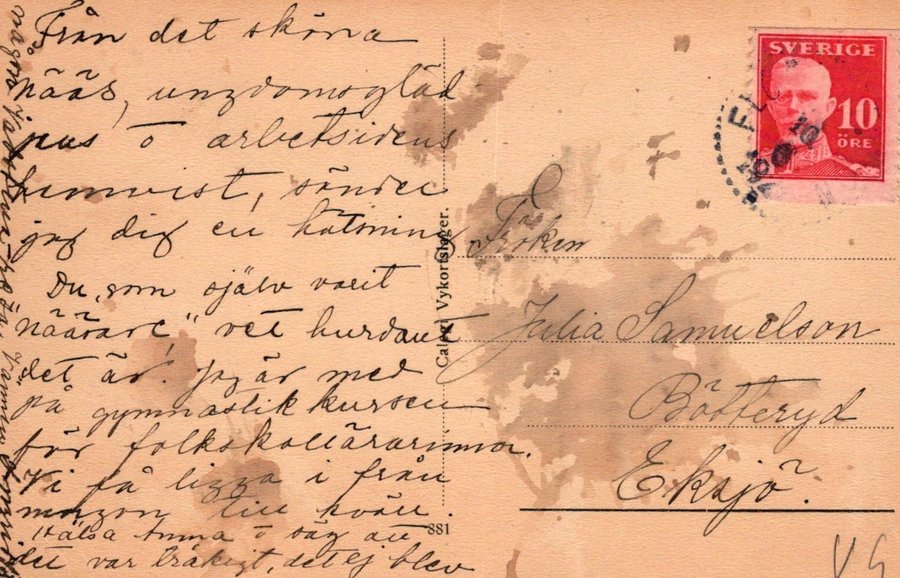 Från det sköna
Nääs, ungdomsgläd
jens o arbetsidens
hemvist, sänder
jag dig en hälsning
Du, som själv varit
"näärare", vet hurdant
det är. Jag är med
på gymnastikkursen
för folkskollärarinnor.
Vi få ligga i från
morgon till kväll.
Hälsa Anna o säg att
det var tråkigt, det ej blev
något
Calegi Vykortslager.
881
Fröken
Julia Samuelson
Bötteryd
Eksjö.
SVERIGE
10
ÖRE
VG